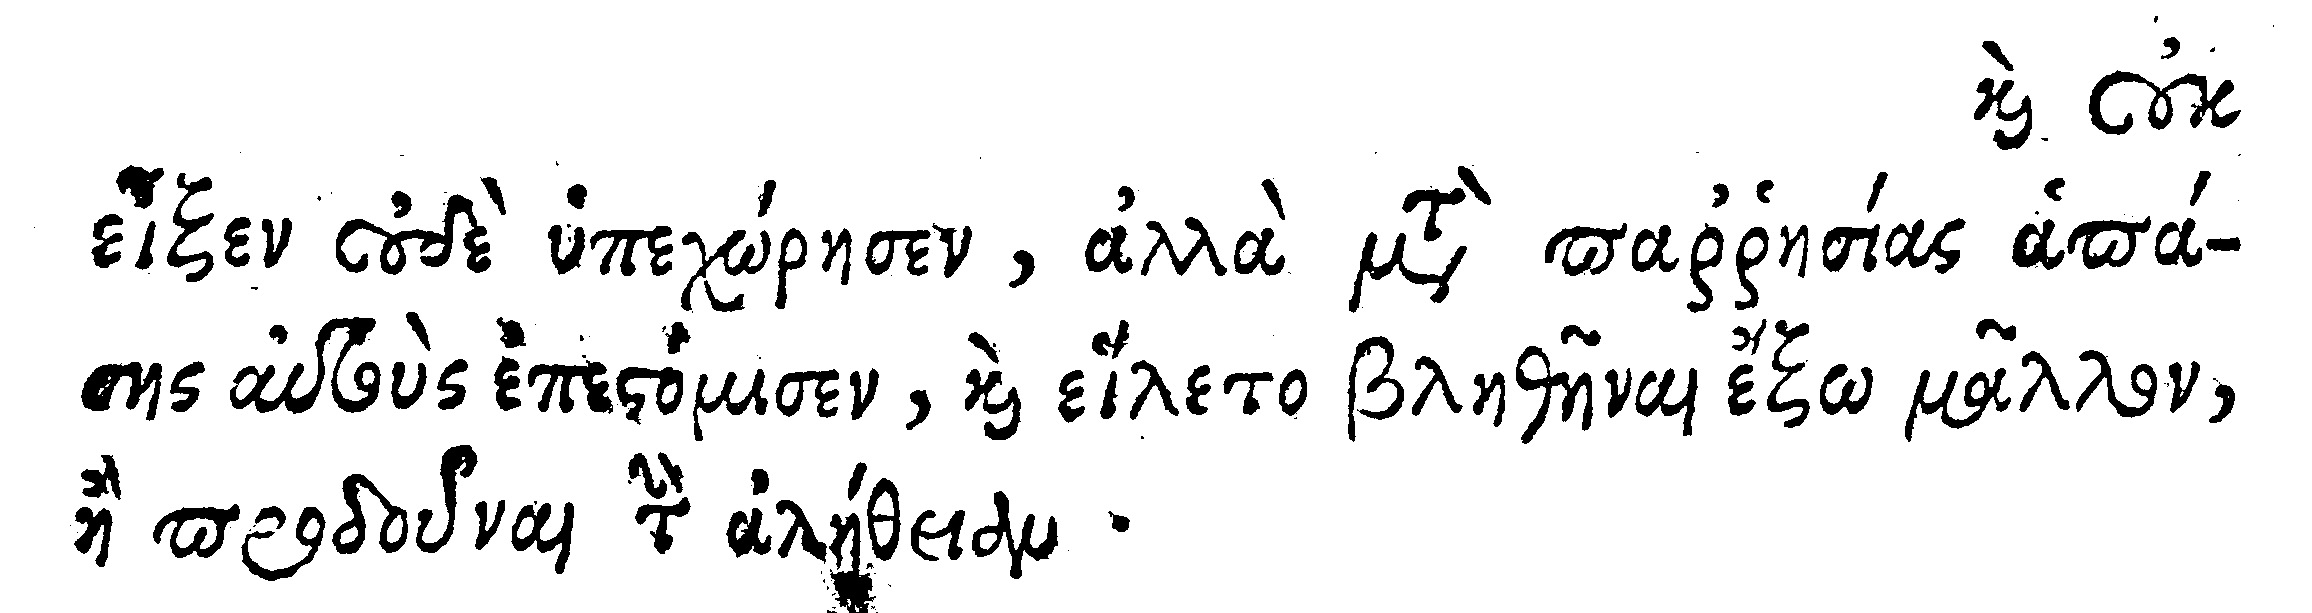 καὶ οὐκ
εἶξεν οὐδὲ ὑπεχώρησεν, ἀλλὰ μετὰ παῤῥησίας ἁπά-
σης αὐτοὺς ἐπεστόμισεν, καὶ εἵλετο βληθῆναι ἔξω μᾶλλον,
ἢ προδοῦναι τὴν ἀλήθειαν.